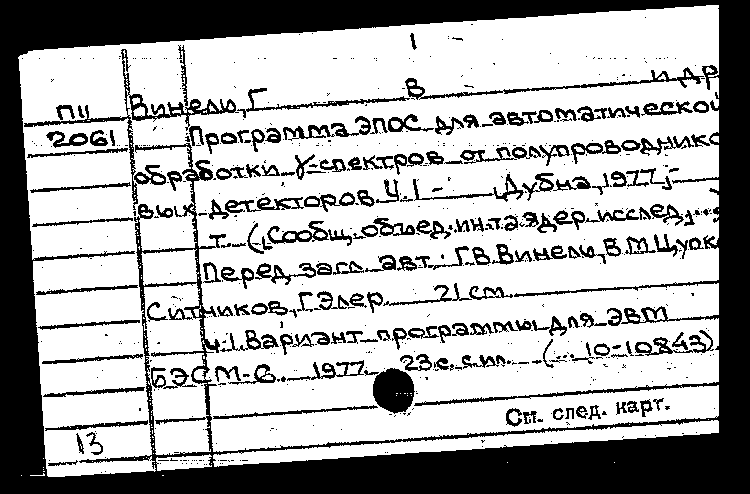 1
П11 Винель, Г В и др
2061 Программа ЭПОС для автоматической
обработки γ-спектров от полупроводнико
вых детекторов. Ч. 1 - , Дубна, 1977.-
т. (, Сообщ. объед. ин-та ядер. исслед.,...
Перед загл. авт.: Г.В. Винель, В.М. Цупк
Ситников, Г. Элер. 21 см
ч. 1. Вариант программы для ЭВМ
БЭСМ-6. 1977. 23 с. с ил. (... 10-10843)
См. след. карт.
13